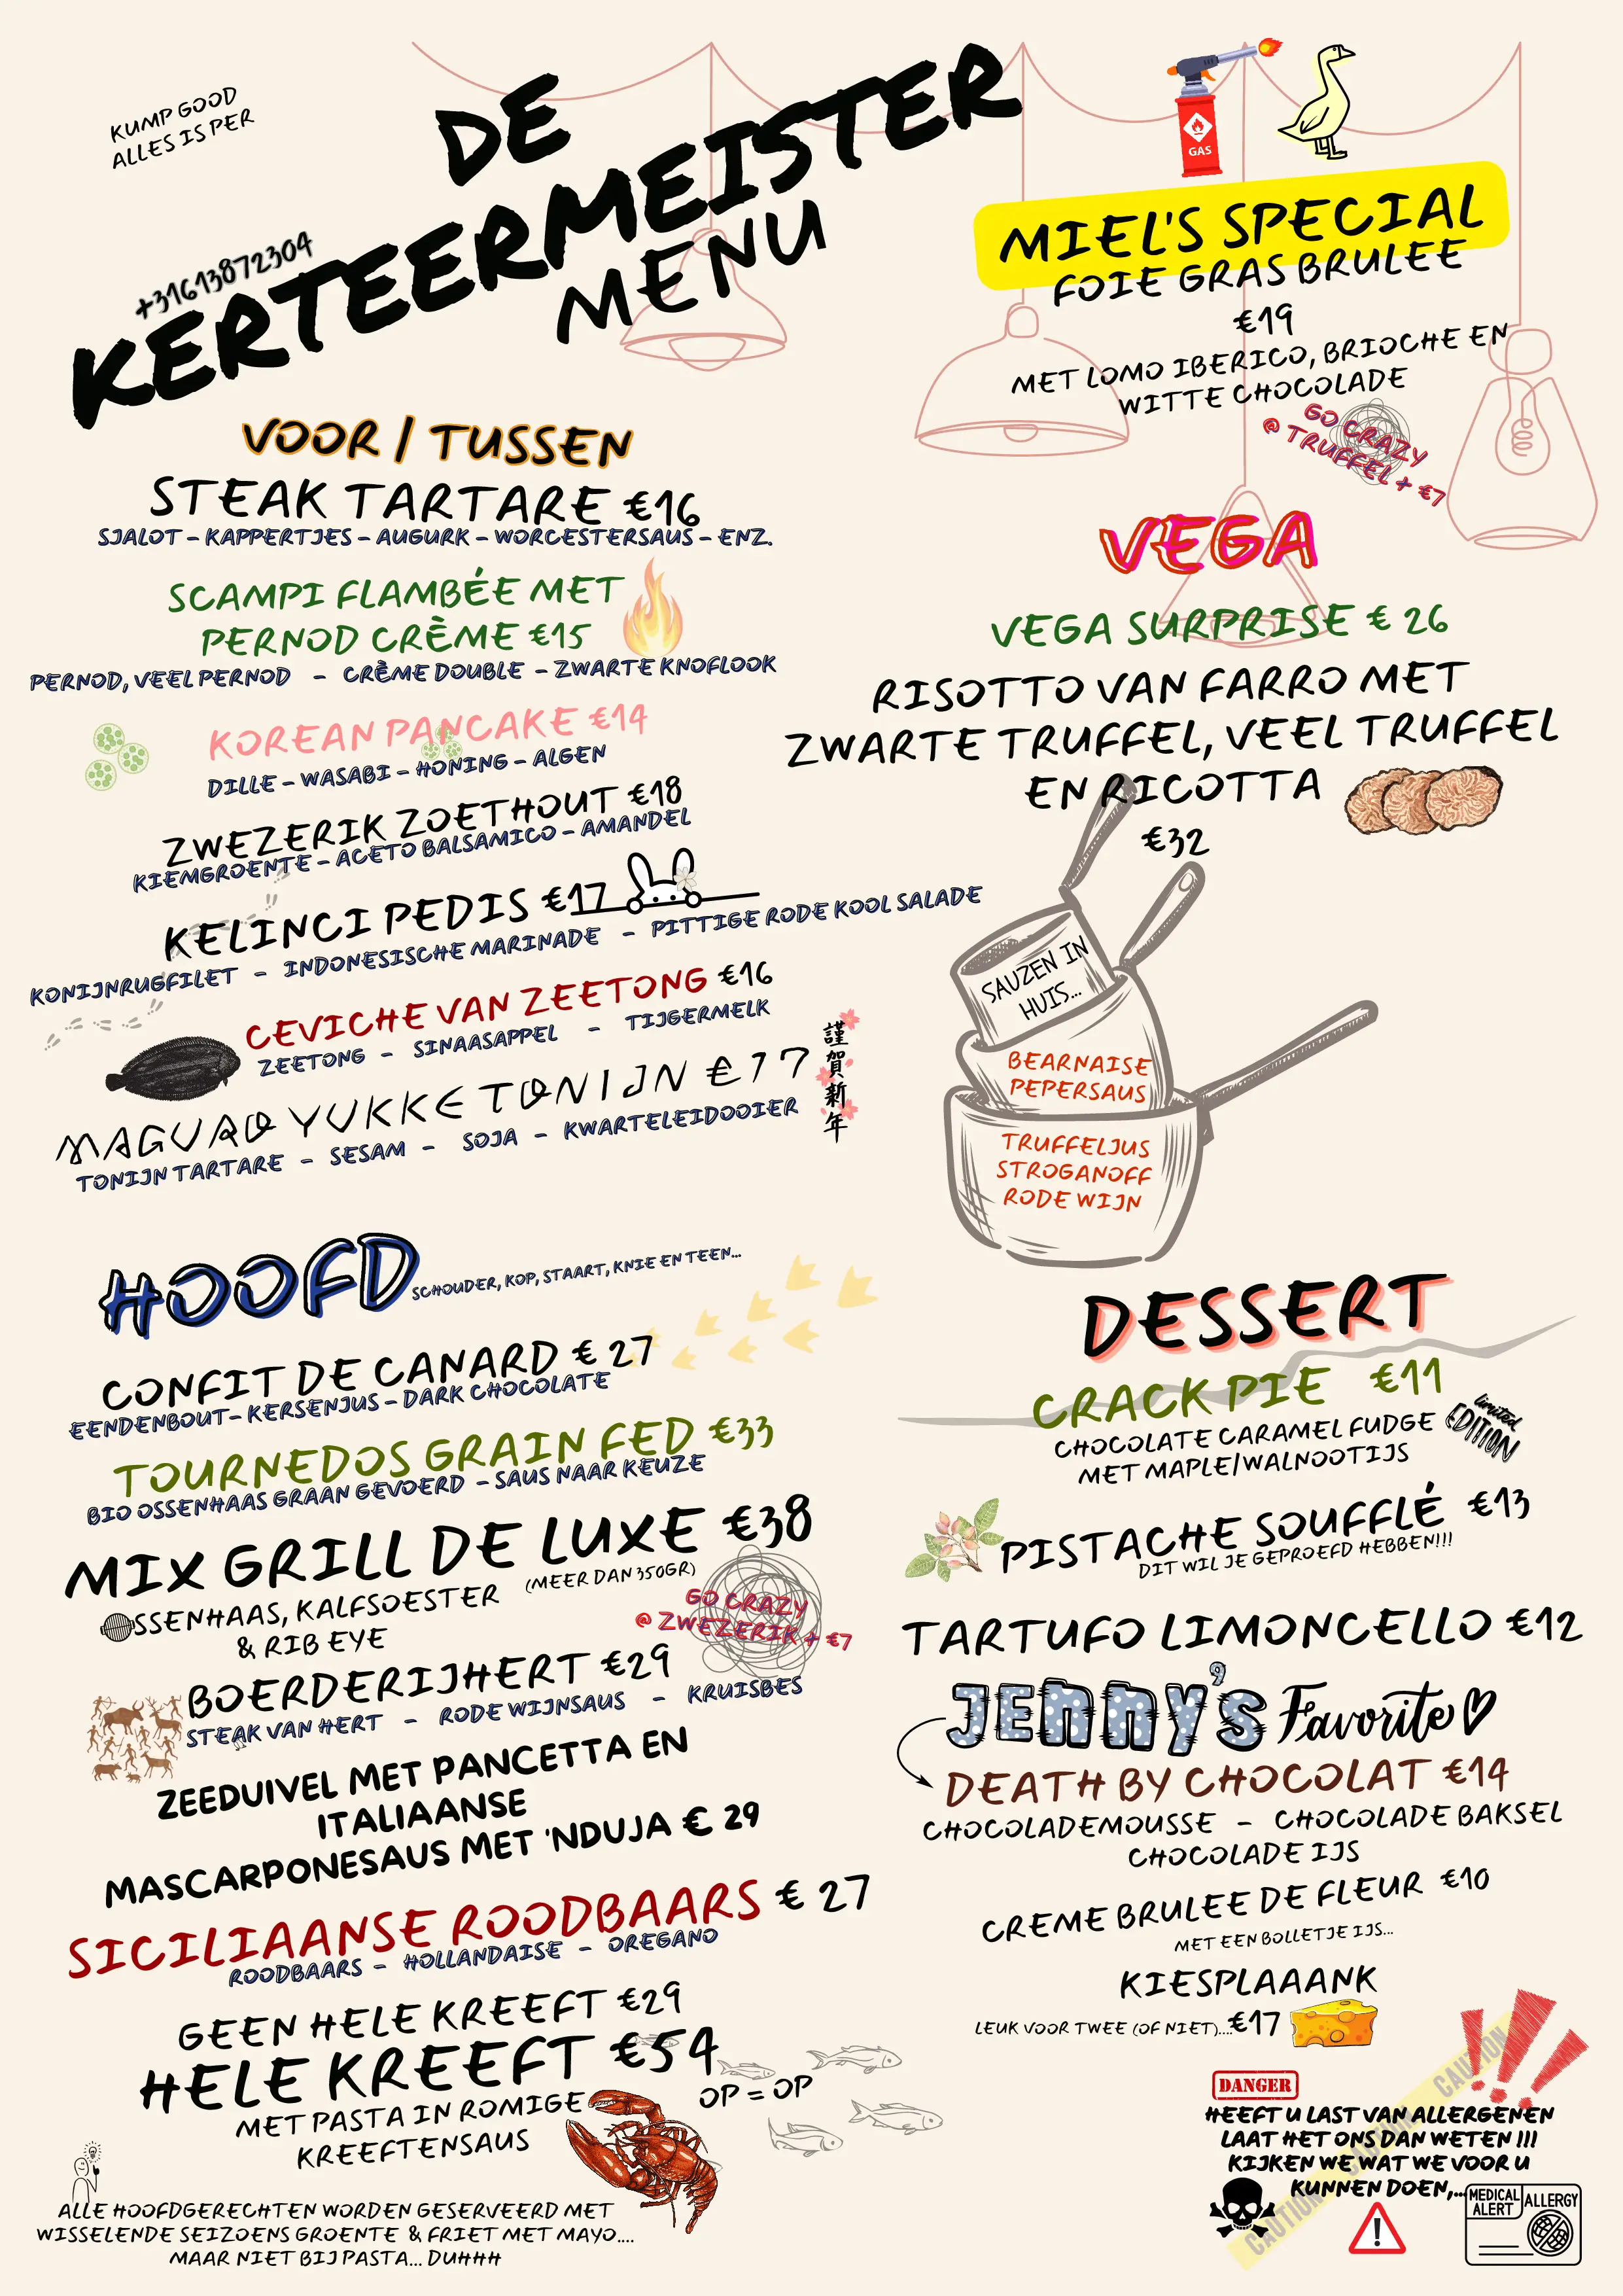 KUMP GOOD
ALLES IS PER
+31613872304
DE
KERTEERMEISTER
MENU
VOOR / TUSSEN
STEAK TARTARE €16
SJALOT - KAPPERTJES - AUGURK - WORCESTERSAUS - ENZ.
SCAMPI FLAMBÉE MET
PERNOD CRÈME €15
PERNOD, VEEL PERNOD - CRÈME DOUBLE - ZWARTE KNOFLOOK
KOREAN PANCAKE €14
DILLE - WASABI - HONING - ALGEN
ZWEZERIK ZOETHOUT €18
KIEMGROENTE - ACETO BALSAMICO - AMANDEL
KELINCI PEDIS €17
KONIJNRUGFILET - INDONESISCHE MARINADE - PITTIGE RODE KOOL SALADE
CEVICHE VAN ZEETONG €16
ZEETONG - SINAASAPPEL - TIJGERMELK
MAGURO YUKKE TONIJN €17
TONIJN TARTARE - SESAM - SOJA - KWARTELEIDOOIER
謹賀新年
HOOFD
SCHOUDER, KOP, STAART, KNIE EN TEEN...
CONFIT DE CANARD € 27
EENDENBOUT- KERSENJUS - DARK CHOCOLATE
TOURNEDOS GRAIN FED €33
BIO OSSENHAAS GRAAN GEVOERD - SAUS NAAR KEUZE
MIX GRILL DE LUXE €38
(MEER DAN 350GR)
OSSENHAAS, KALFSOESTER
& RIB EYE
GO CRAZY
@ ZWEZERIK + €7
BOERDERIJHERT €29
STEAK VAN HERT - RODE WIJNSAUS - KRUISBES
ZEEDUIVEL MET PANCETTA EN
ITALIAANSE
MASCARPONESAUS MET 'NDUJA € 29
SICILIAANSE ROODBAARS € 27
ROODBAARS - HOLLANDAISE - OREGANO
GEEN HELE KREEFT €29
HELE KREEFT €54
OP = OP
MET PASTA IN ROMIGE
KREEFTENSAUS
ALLE HOOFDGERECHTEN WORDEN GESERVEERD MET
WISSELENDE SEIZOENS GROENTE & FRIET MET MAYO....
MAAR NIET BIJ PASTA... DUHHH
GAS
MIEL'S SPECIAL
FOIE GRAS BRULEE
€19
MET LOMO IBERICO, BRIOCHE EN
WITTE CHOCOLADE
GO CRAZY
@ TRUFFEL + €7
VEGA
VEGA SURPRISE € 26
RISOTTO VAN FARRO MET
ZWARTE TRUFFEL, VEEL TRUFFEL
EN RICOTTA
€32
SAUZEN IN
HUIS...
BEARNAISE
PEPERSAUS
TRUFFELJUS
STROGANOFF
RODE WIJN
DESSERT
CRACK PIE €11
CHOCOLATE CARAMEL FUDGE
MET MAPLE/WALNOOTIJS
limited
EDITION
PISTACHE SOUFFLÉ €13
DIT WIL JE GEPROEFD HEBBEN!!!
TARTUFO LIMONCELLO €12
JENNY'S Favorite
DEATH BY CHOCOLAT €14
CHOCOLADEMOUSSE - CHOCOLADE BAKSEL
CHOCOLADE IJS
CREME BRULEE DE FLEUR €10
MET EEN BOLLETJE IJS...
KIESPLAAANK
LEUK VOOR TWEE (OF NIET)...€17
!!!
DANGER
CAUTION CAUTION CAUTION
HEEFT U LAST VAN ALLERGENEN
LAAT HET ONS DAN WETEN !!!
KIJKEN WE WAT WE VOOR U
KUNNEN DOEN,...
MEDICAL
ALERT
ALLERGY
!